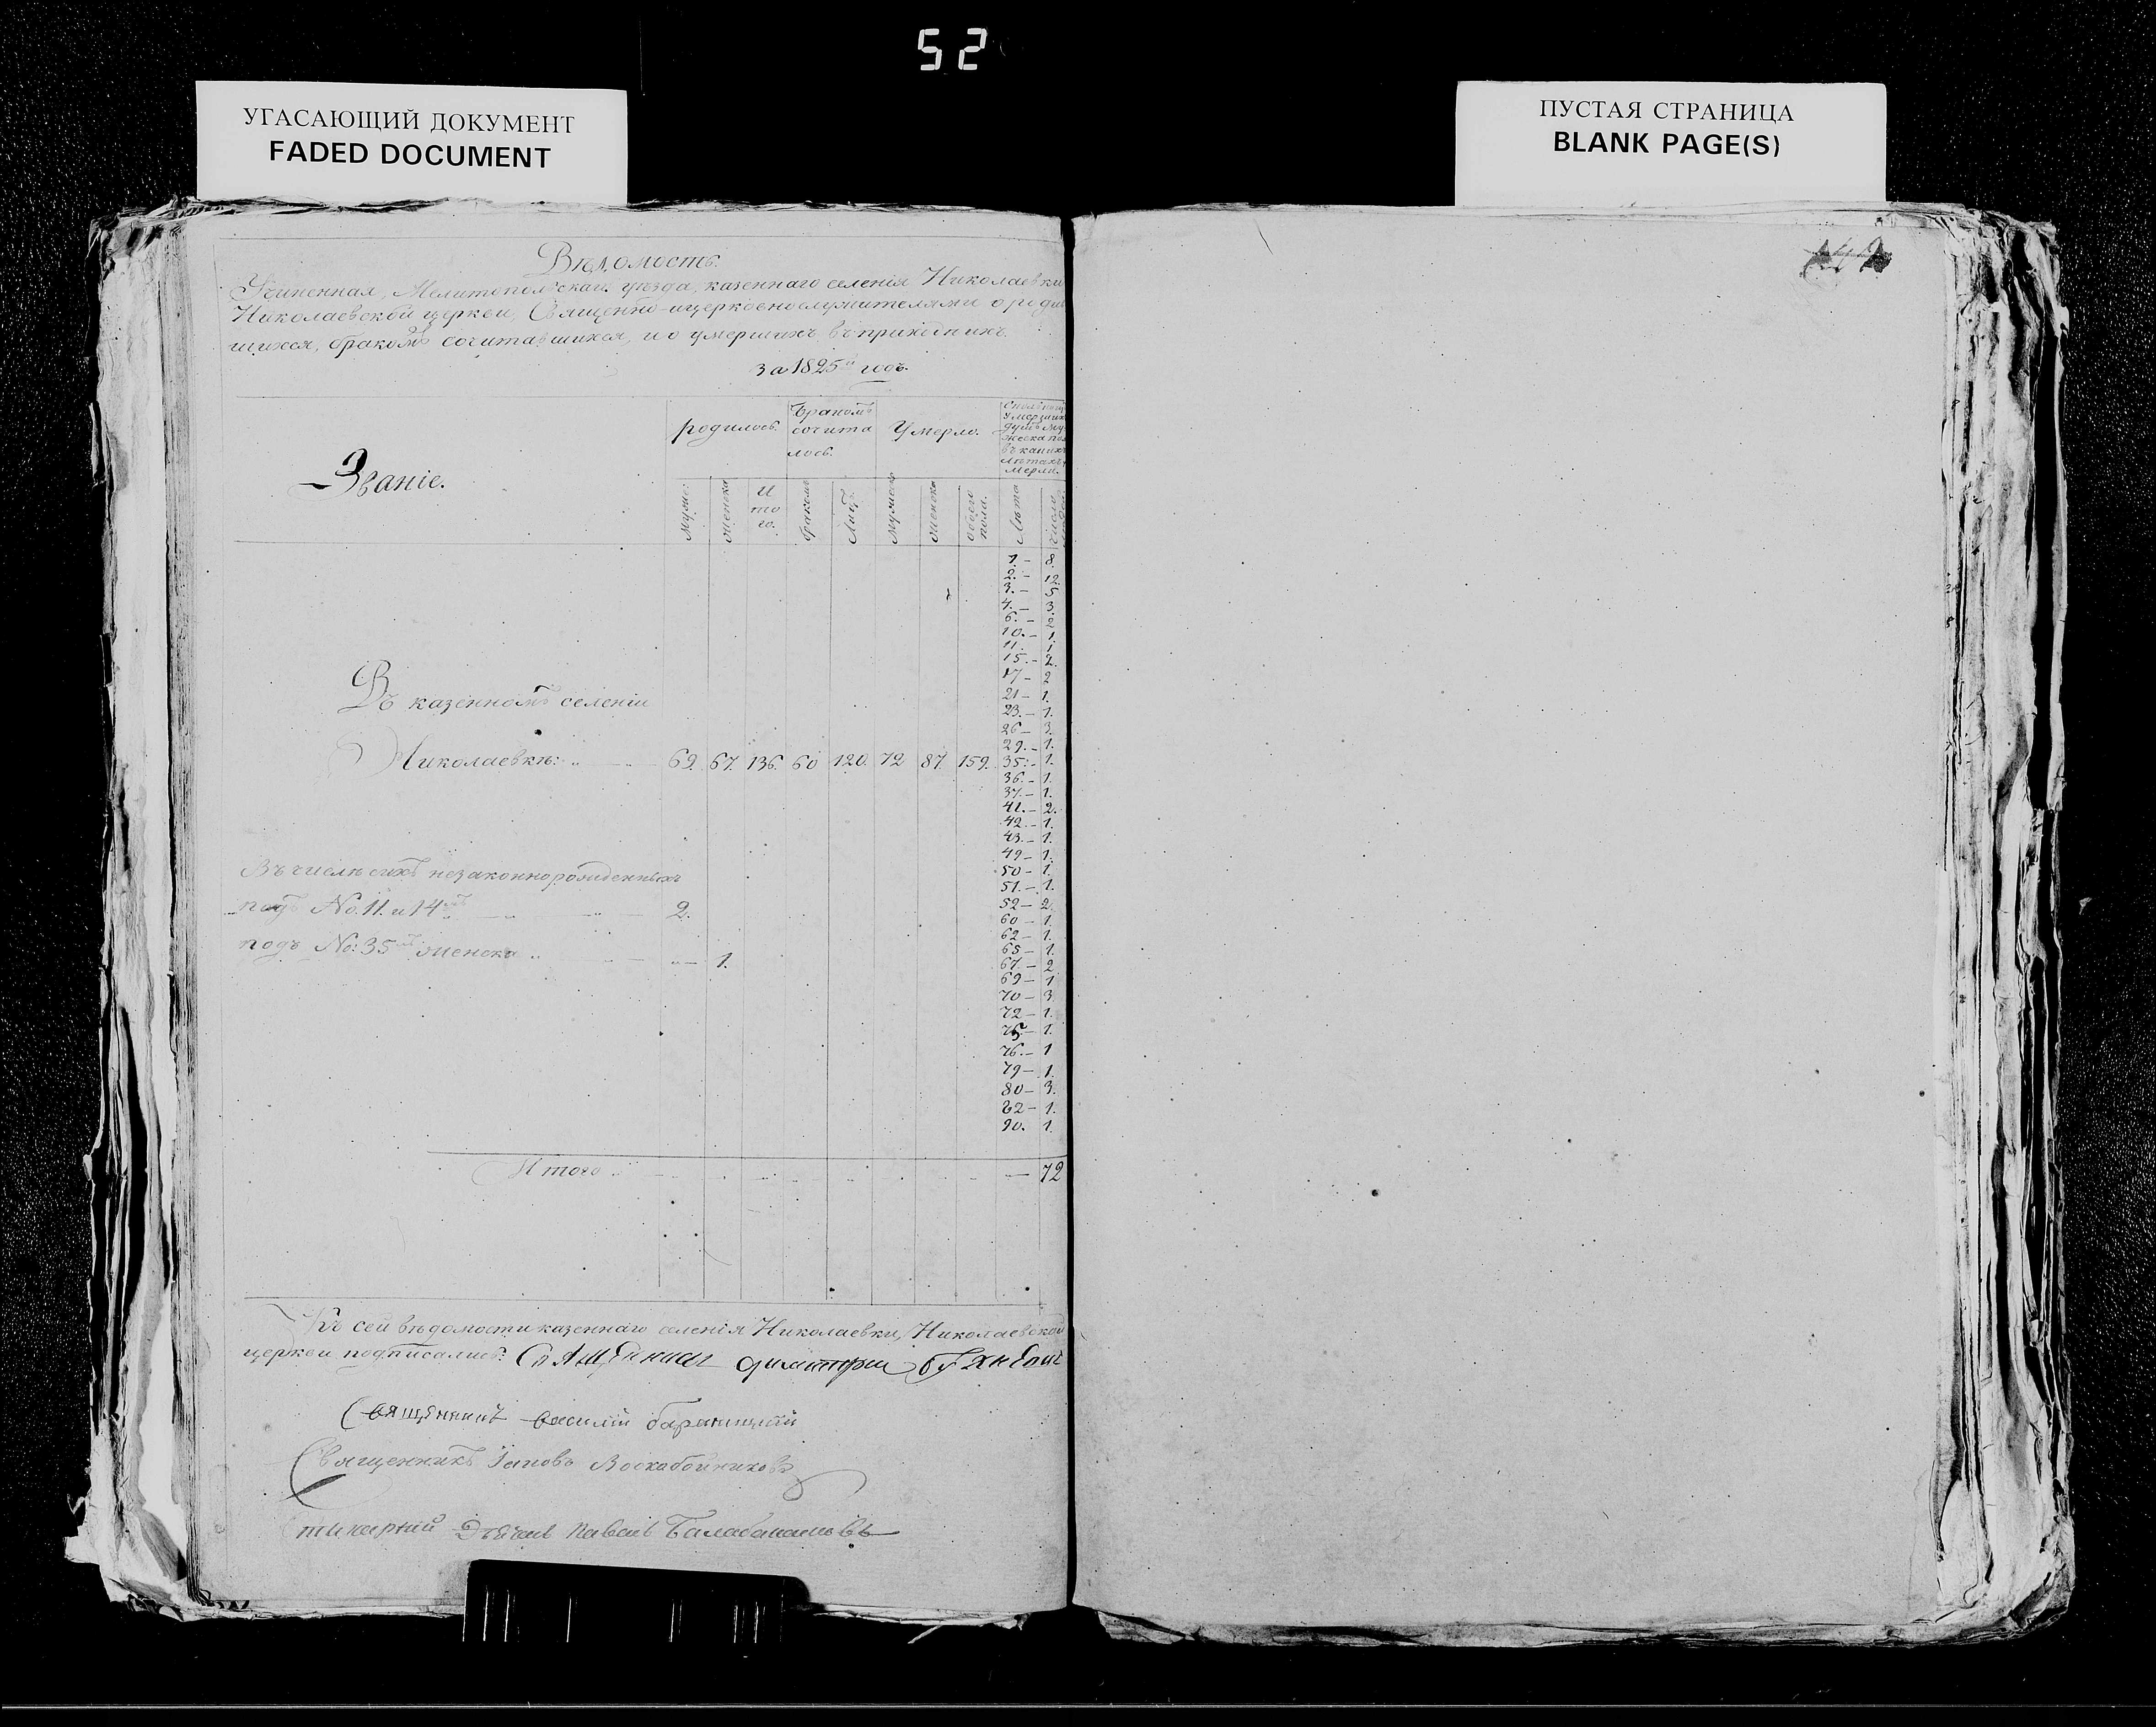 52
УГАСАЮЩИЙ ДОКУМЕНТ
FADED DOCUMENT
ПУСТАЯ СТРАНИЦА
BLANK PAGE(S)
Вѣдомость.
Учиненная, Мелитопольскаго уѣзда, казеннаго селенія Николаевки
Николаевской церкви, Священно-ицерковнослужителями о родив
шихся, бракомъ сочитавшихся, и о умершихъ въ приходѣ ихъ
за 1825й годъ.
Званіе.
родилось.
Бракомъ
сочита
лось.
Умерло.
умершихъ
душъ му
жеска пол
въ какихъ
лѣтахъ у
мерли.
муже:
женска
И
то
го.
браком
Лицъ
мужеск
женска
обоего
пола.
Лѣта
число
1.- 8.
2.- 12.
3.- 5
4.- 3.
6.- 2
10.- 1.
11. 1
15.- 2.
17- 2
21- 1.
23.- 1.
26- 3.
29.- 1.
35.- 1.
36.- 1.
37.- 1.
41.- 2.
42.- 1.
43.- 1.
49- 1.
50- 1.
51.- 1.
52- 2.
60- 1.
62- 1.
65- 1.
67.- 2
69- 1
70- 3.
72- 1.
75- 1.
76.- 1
79- 1.
80- 3.
82- 1.
90. 1.
Въ казенномъ селеніи
Николаевкѣ: 69. 67. 136. 60 120. 72 87. 159.
Въ числѣ сихъ незаконнорожденныхъ
подъ No. 11. и 14мъ 2.
подъ No: 35мъ женска 1.
Итого 72
Къ сей вѣдомости казеннаго селенія Николаевки, Николаевской
церкви подписались: Священникъ димитрий
Священникъ василий
Священникъ Іаковъ Воскобойниковъ
Павелъ